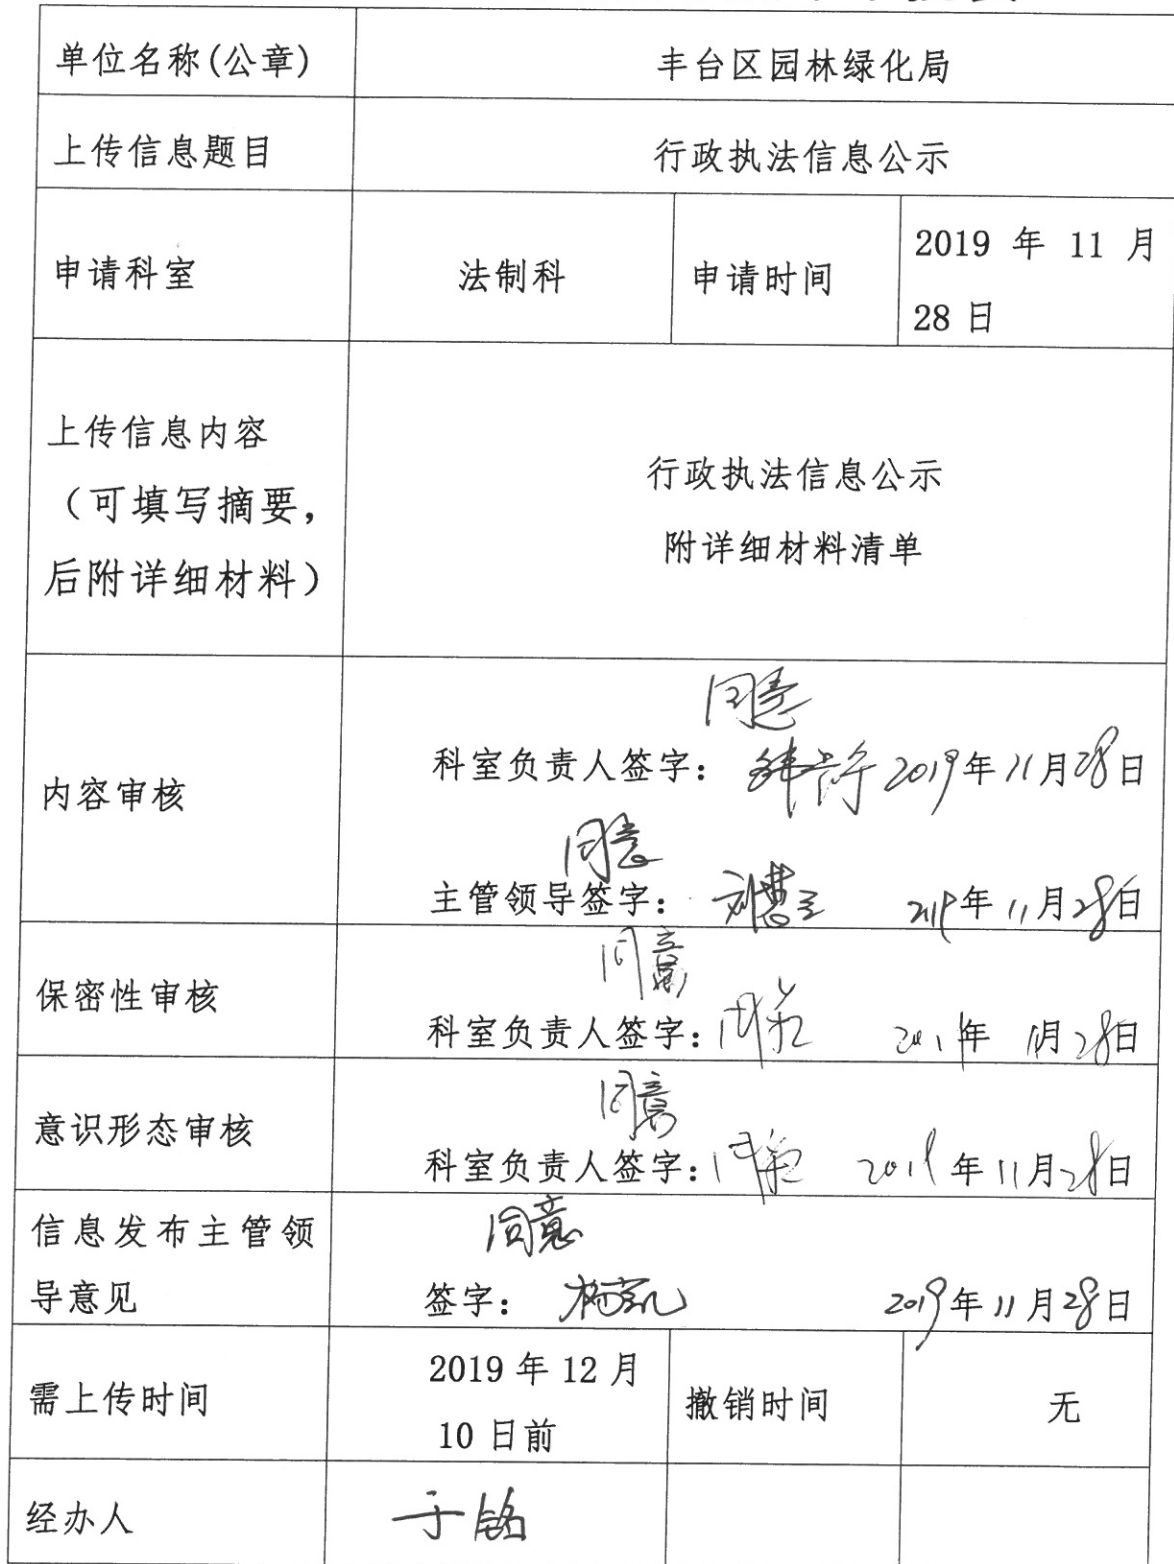 单位名称(公章) 丰台区园林绿化局
上传信息题目 行政执法信息公示
申请科室 法制科 申请时间 2019 年 11 月
28 日
上传信息内容
(可填写摘要,
后附详细材料)
行政执法信息公示
附详细材料清单
内容审核
同意
科室负责人签字: 2019年11月28日
同意
主管领导签字: 2019年11月28日
保密性审核
同意
科室负责人签字: 2019年11月28日
意识形态审核
同意
科室负责人签字: 2019年11月28日
信息发布主管领
导意见
同意
签字: 杨凯 2019年11月28日
需上传时间
2019 年 12 月
10 日前
撤销时间 无
经办人 于铭